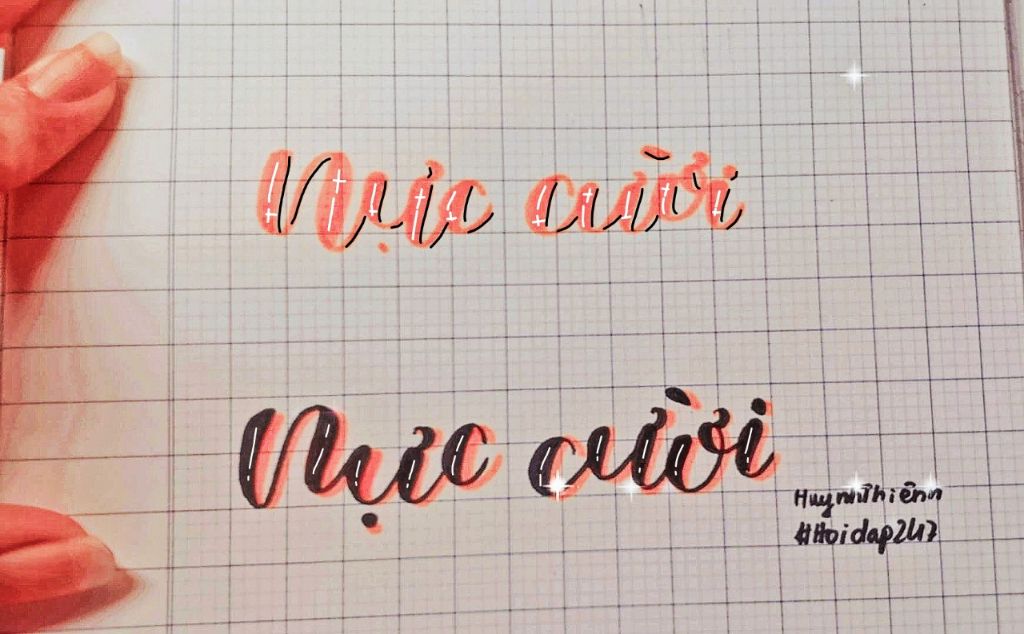 Nực cười
Nực cười
Huynhthiênn
#Hoidap247